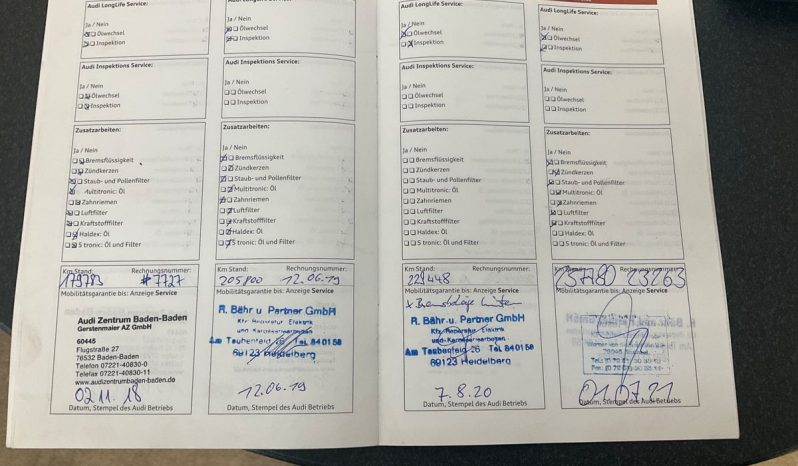 Audi LongLife Service:
Ja / Nein
Ölwechsel
Inspektion
Audi Inspektions Service:
Ja / Nein
Ölwechsel
Inspektion
Zusatzarbeiten:
Ja / Nein
Bremsflüssigkeit
Zündkerzen
Staub- und Pollenfilter
Multitronic: Öl
Zahnriemen
Luftfilter
Kraftstofffilter
Haldex: Öl
S tronic: Öl und Filter
Km Stand: Rechnungsnummer:
179783 #7727
Mobilitätsgarantie bis: Anzeige Service
Audi Zentrum Baden-Baden
Gerstenmaier AZ GmbH
60445
Flugstraße 27
76532 Baden-Baden
Telefon 07221-40830-0
Telefax 07221-40830-11
www.audizentrumbaden-baden.de
02.11.18
Datum, Stempel des Audi Betriebs
Ja / Nein
Ölwechsel
Inspektion
Audi Inspektions Service:
Ja / Nein
Ölwechsel
Inspektion
Zusatzarbeiten:
Ja / Nein
Bremsflüssigkeit
Zündkerzen
Staub- und Pollenfilter
Multitronic: Öl
Zahnriemen
Luftfilter
Kraftstofffilter
Haldex: Öl
S tronic: Öl und Filter
Km Stand: Rechnungsnummer:
205800 12.06.19
Mobilitätsgarantie bis: Anzeige Service
R. Bähr u. Partner GmbH
Kfz Reparatur Elektrik
und Karosseriearbeiten
Am Taubenfeld 26 Tel. 84 01 58
69123 Heidelberg
12.06.19
Datum, Stempel des Audi Betriebs
Audi LongLife Service:
Ja / Nein
Ölwechsel
Inspektion
Audi Inspektions Service:
Ja / Nein
Ölwechsel
Inspektion
Zusatzarbeiten:
Ja / Nein
Bremsflüssigkeit
Zündkerzen
Staub- und Pollenfilter
Multitronic: Öl
Zahnriemen
Luftfilter
Kraftstofffilter
Haldex: Öl
S tronic: Öl und Filter
Km Stand: Rechnungsnummer:
Mobilitätsgarantie bis: Anzeige Service
R. Bähr u. Partner GmbH
Kfz-Reparatur Elektrik
und Karosseriearbeiten
Am Taubenfeld 26 Tel. 84 01 58
69123 Heidelberg
7.8.20
Datum, Stempel des Audi Betriebs
Audi LongLife Service:
Ja / Nein
Ölwechsel
Inspektion
Audi Inspektions Service:
Ja / Nein
Ölwechsel
Inspektion
Zusatzarbeiten:
Ja / Nein
Bremsflüssigkeit
Zündkerzen
Staub- und Pollenfilter
Multitronic: Öl
Zahnriemen
Luftfilter
Kraftstofffilter
Haldex: Öl
S tronic: Öl und Filter
Rechnungsnummer:
23263
Mobilitätsgarantie bis: Anzeige Service
01.07.21
Datum, Stempel des Audi Betriebs